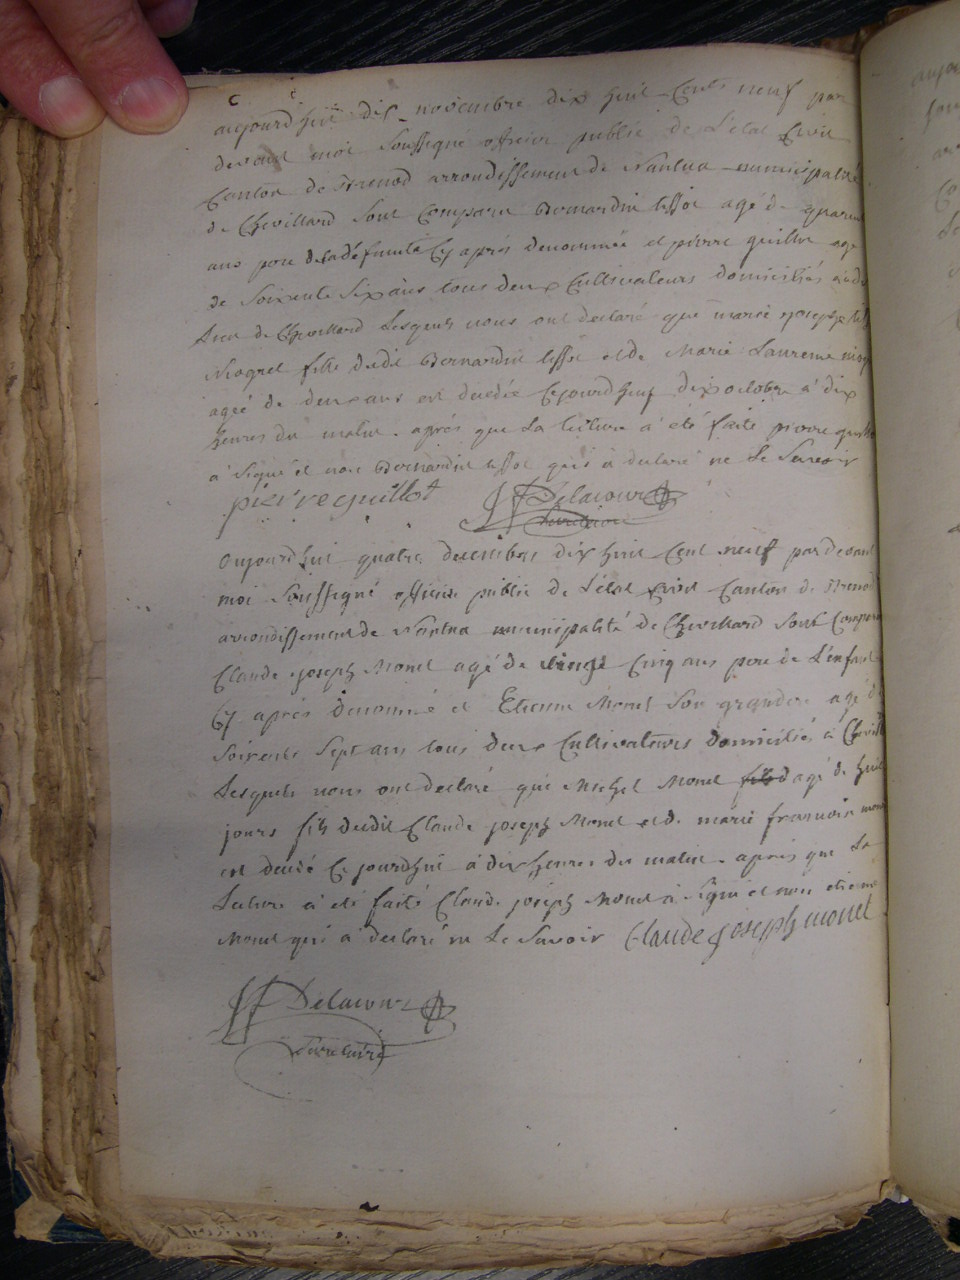 aujourd'huit dix novembre dix huit Cents neuf par
devant moi soussigné officier public de L'état Civil
Canton de Brenod arrondissement de Nantua municipalité
de Chevillard sont Comparu Bernardin tissot agé de quarante
ans pere de la défunte Cy aprés denommée et pierre guillot agé
de soixante six ans tous deux Cultivateurs domiciliés audit
Lieu de Chevillard Lesquels nous ont declaré que marie josephe
fille dudit Bernardin tissot et de Marie Laurence
agée de deux ans est decedée Cejourd'huy dix octobre à dix
heures du matin. aprés que La lecture à été faite pierre guillot
à signé et non Bernardin tissot qui à declaré ne Le savoir
pierre guillot Delacour
Secretaire
aujourd'huit quatre decembre dix huit Cent neuf par devant
moi soussigné officier public de L'état Civil Canton de Brenod
arrondissement de Nantua municipalité de Chevillard sont Comparu
Claude joseph Monet agé de vingt Cinq ans pere de L'enfant
Cy aprés denommé et Etienne Monet son grandpere agé de
soixante sept ans tous deux Cultivateurs domiciliés à Chevillard
Lesquels nous ont declaré que Michel Monet agé de huit
jours fils dudit Claude joseph Monet et de marie francoise monet
est decedé Cejourd'huit à dix heures du matin. aprés que La
Lecture à été faite Claude joseph Monet à signé et non etienne
Monet qui à declaré ne Le savoir Claude joseph monet
Delacour
Secretaire